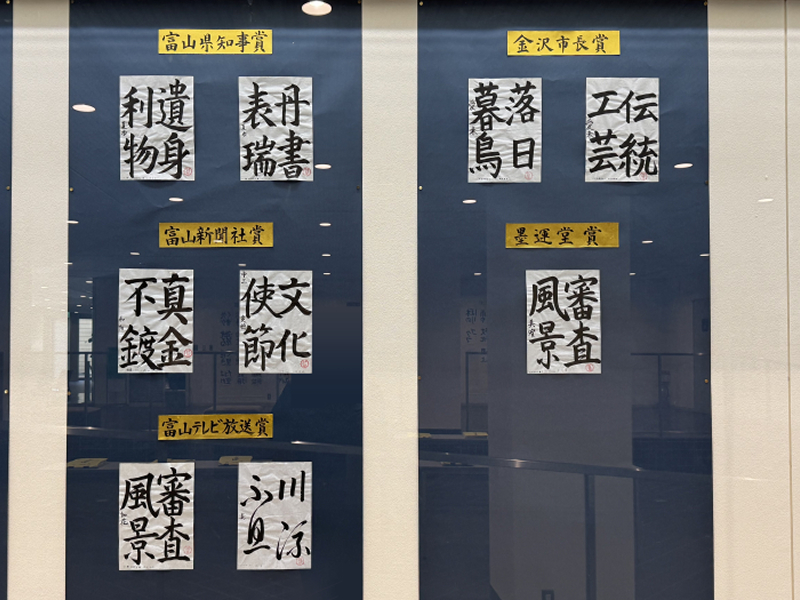 富山県知事賞
丹書
表瑞
遺身
利物
富山新聞社賞
文化
使節
真金
不鍍
富山テレビ放送賞
審査
風景
金沢市長賞
伝統
工芸
落日
暮鳥
墨運堂賞
審査
風景